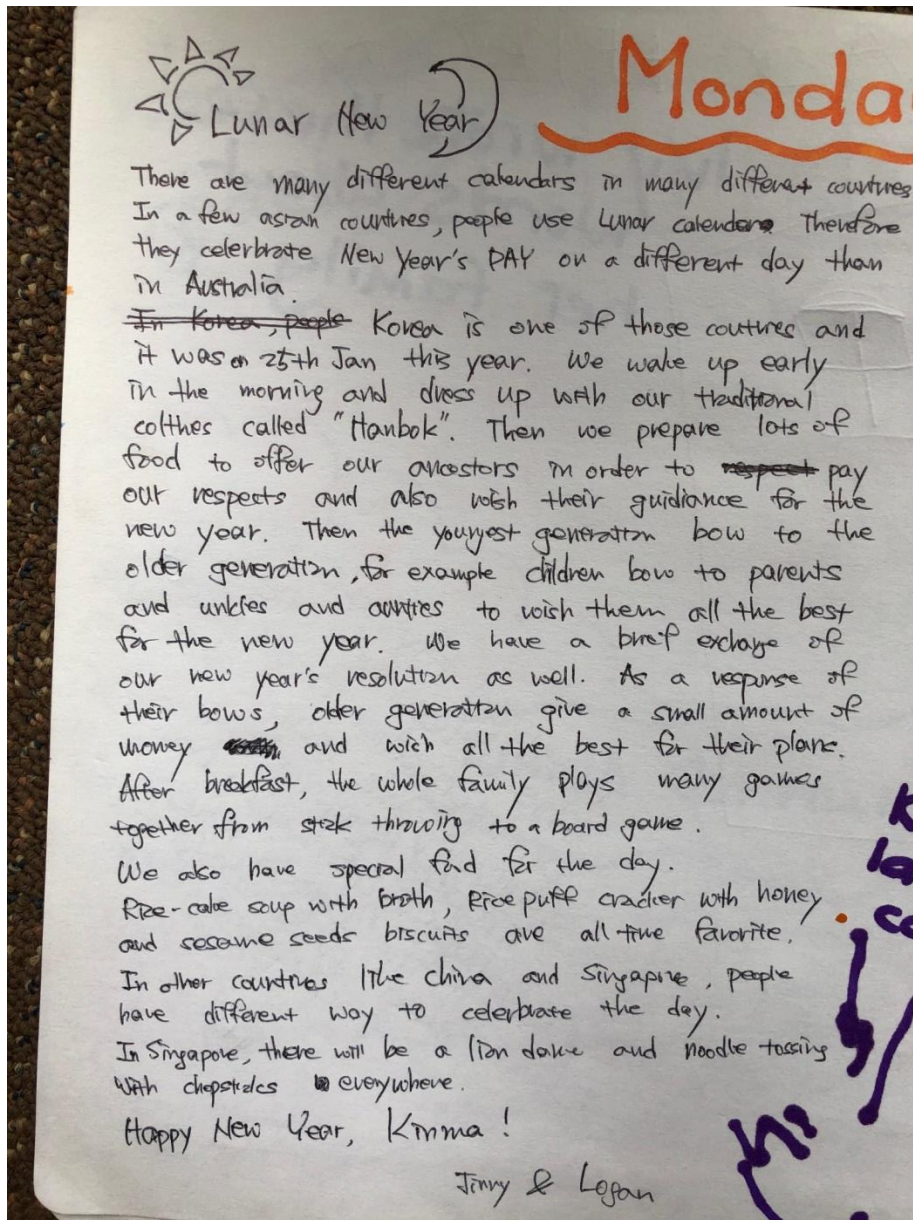 Monda
Lunar New Year
There are many different calendars in many different countries
In a few asian countries, people use Lunar calendars Therefore
they celerbrate New Year's DAY on a different day than
in Australia.
In Korea, people Korea is one of those coutires and
it was on 25th Jan this year. We wake up early
in the morning and dress up with our traditional
colthes called "Hanbok". Then we prepare lots of
food to offer our ancestors in order to respect pay
our respects and also wish their guidiance for the
new year. Then the youngest generation bow to the
older generation, for example children bow to parents
and unkles and aunties to wish them all the best
for the new year. We have a brief exchange of
our new year's resolution as well. As a response of
their bows, older generation give a small amount of
money and wish all the best for their plans.
After breakfast, the whole family plays many games
together from stick throwing to a board game.
We also have special food for the day.
Rice-cake soup with broth, Rice puff cracker with honey
and sesame seeds biscuits are all time favorite.
In other countries like china and Singapore, people
have different way to celerbrate the day.
In Singapore, there will be a lion dance and noodle tossing
with chopsticks everywhere.
Happy New Year, Kinma!
Jinny & Logan